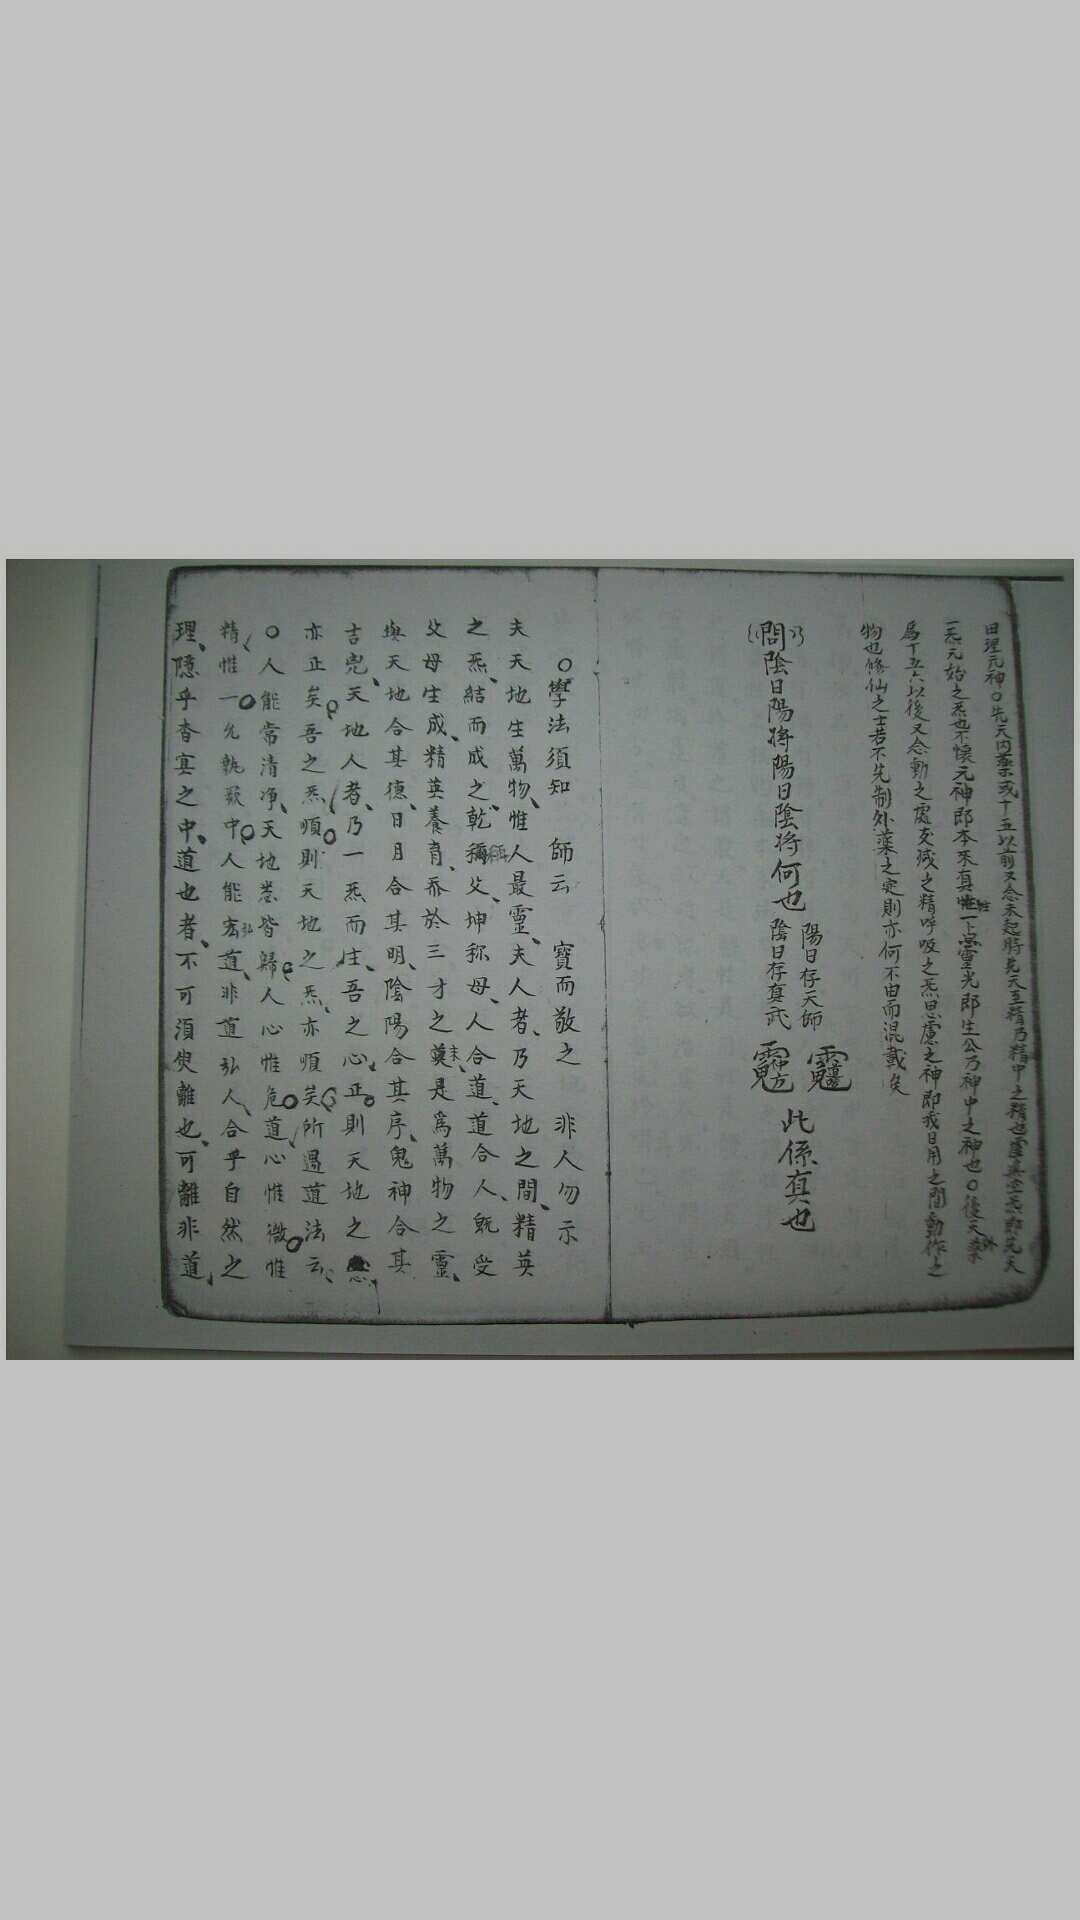 田理元神○先天内藥或十五以前又念未起時先天至精乃精中之精也虛無空炁即先天
一炁元始之炁也不懷元神即本來真性一卜靈光即生公乃神中之神也○後天藥
爲丁五六以後又念動之處交媾之精呼吸之炁思慮之神即我日用之間動作之
物也修仙之士若不先制外藥之定則亦何不由而混載矣
問陰日陽將陽日陰將何也
陽日存天師
陰日存真武
此係真也
○學法須知 師云 寶而敬之 非人勿示
夫天地生萬物、惟人最靈、夫人者、乃天地之間、精英
之炁、結而成之、乾稱父、坤称母、人合道、道合人、既受
父母生成、精英養育、忝於三才之奠、是爲萬物之靈、
與天地合其德、日月合其明、陰陽合其序、鬼神合其
吉兇、天地人者、乃一炁而生、吾之心正則天地之
亦正矣吾之炁順則天地之炁亦順矣所遇道法云、
○人能常清净、天地悉皆歸人心惟危道心惟微惟
精惟一允執厥中人能宏道、非道弘人、合乎自然之
理、隱乎杳冥之中、道也者、不可須臾離也、可離非道、